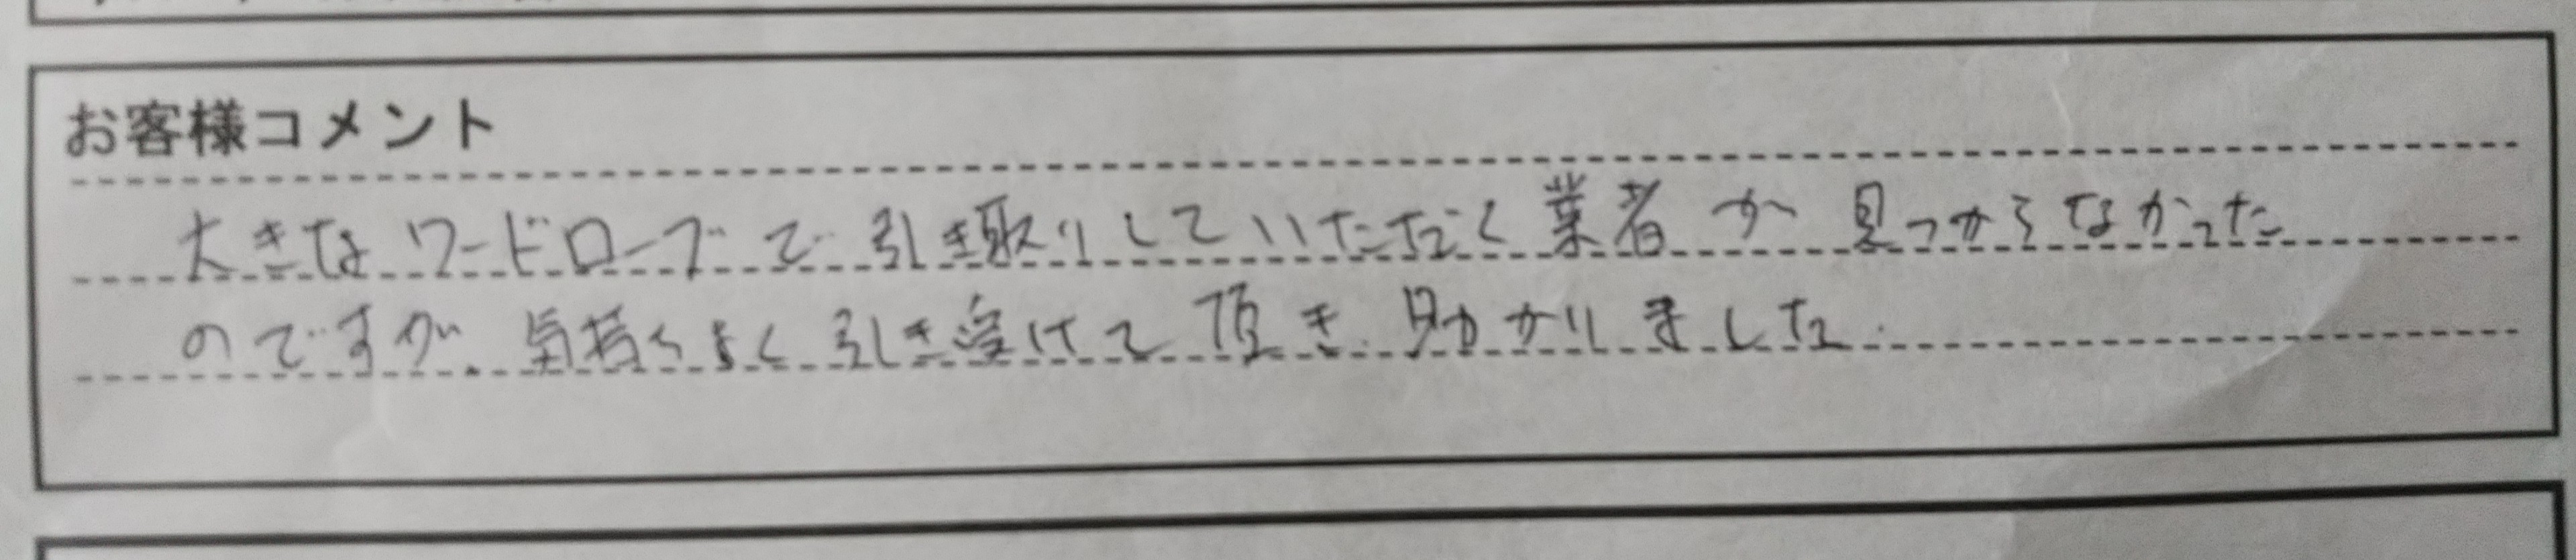 お客様コメント
大きなワードローブで引き取りしていただく業者が見つからなかった
のですが、気持ちよく引き受けて頂き助かりました.